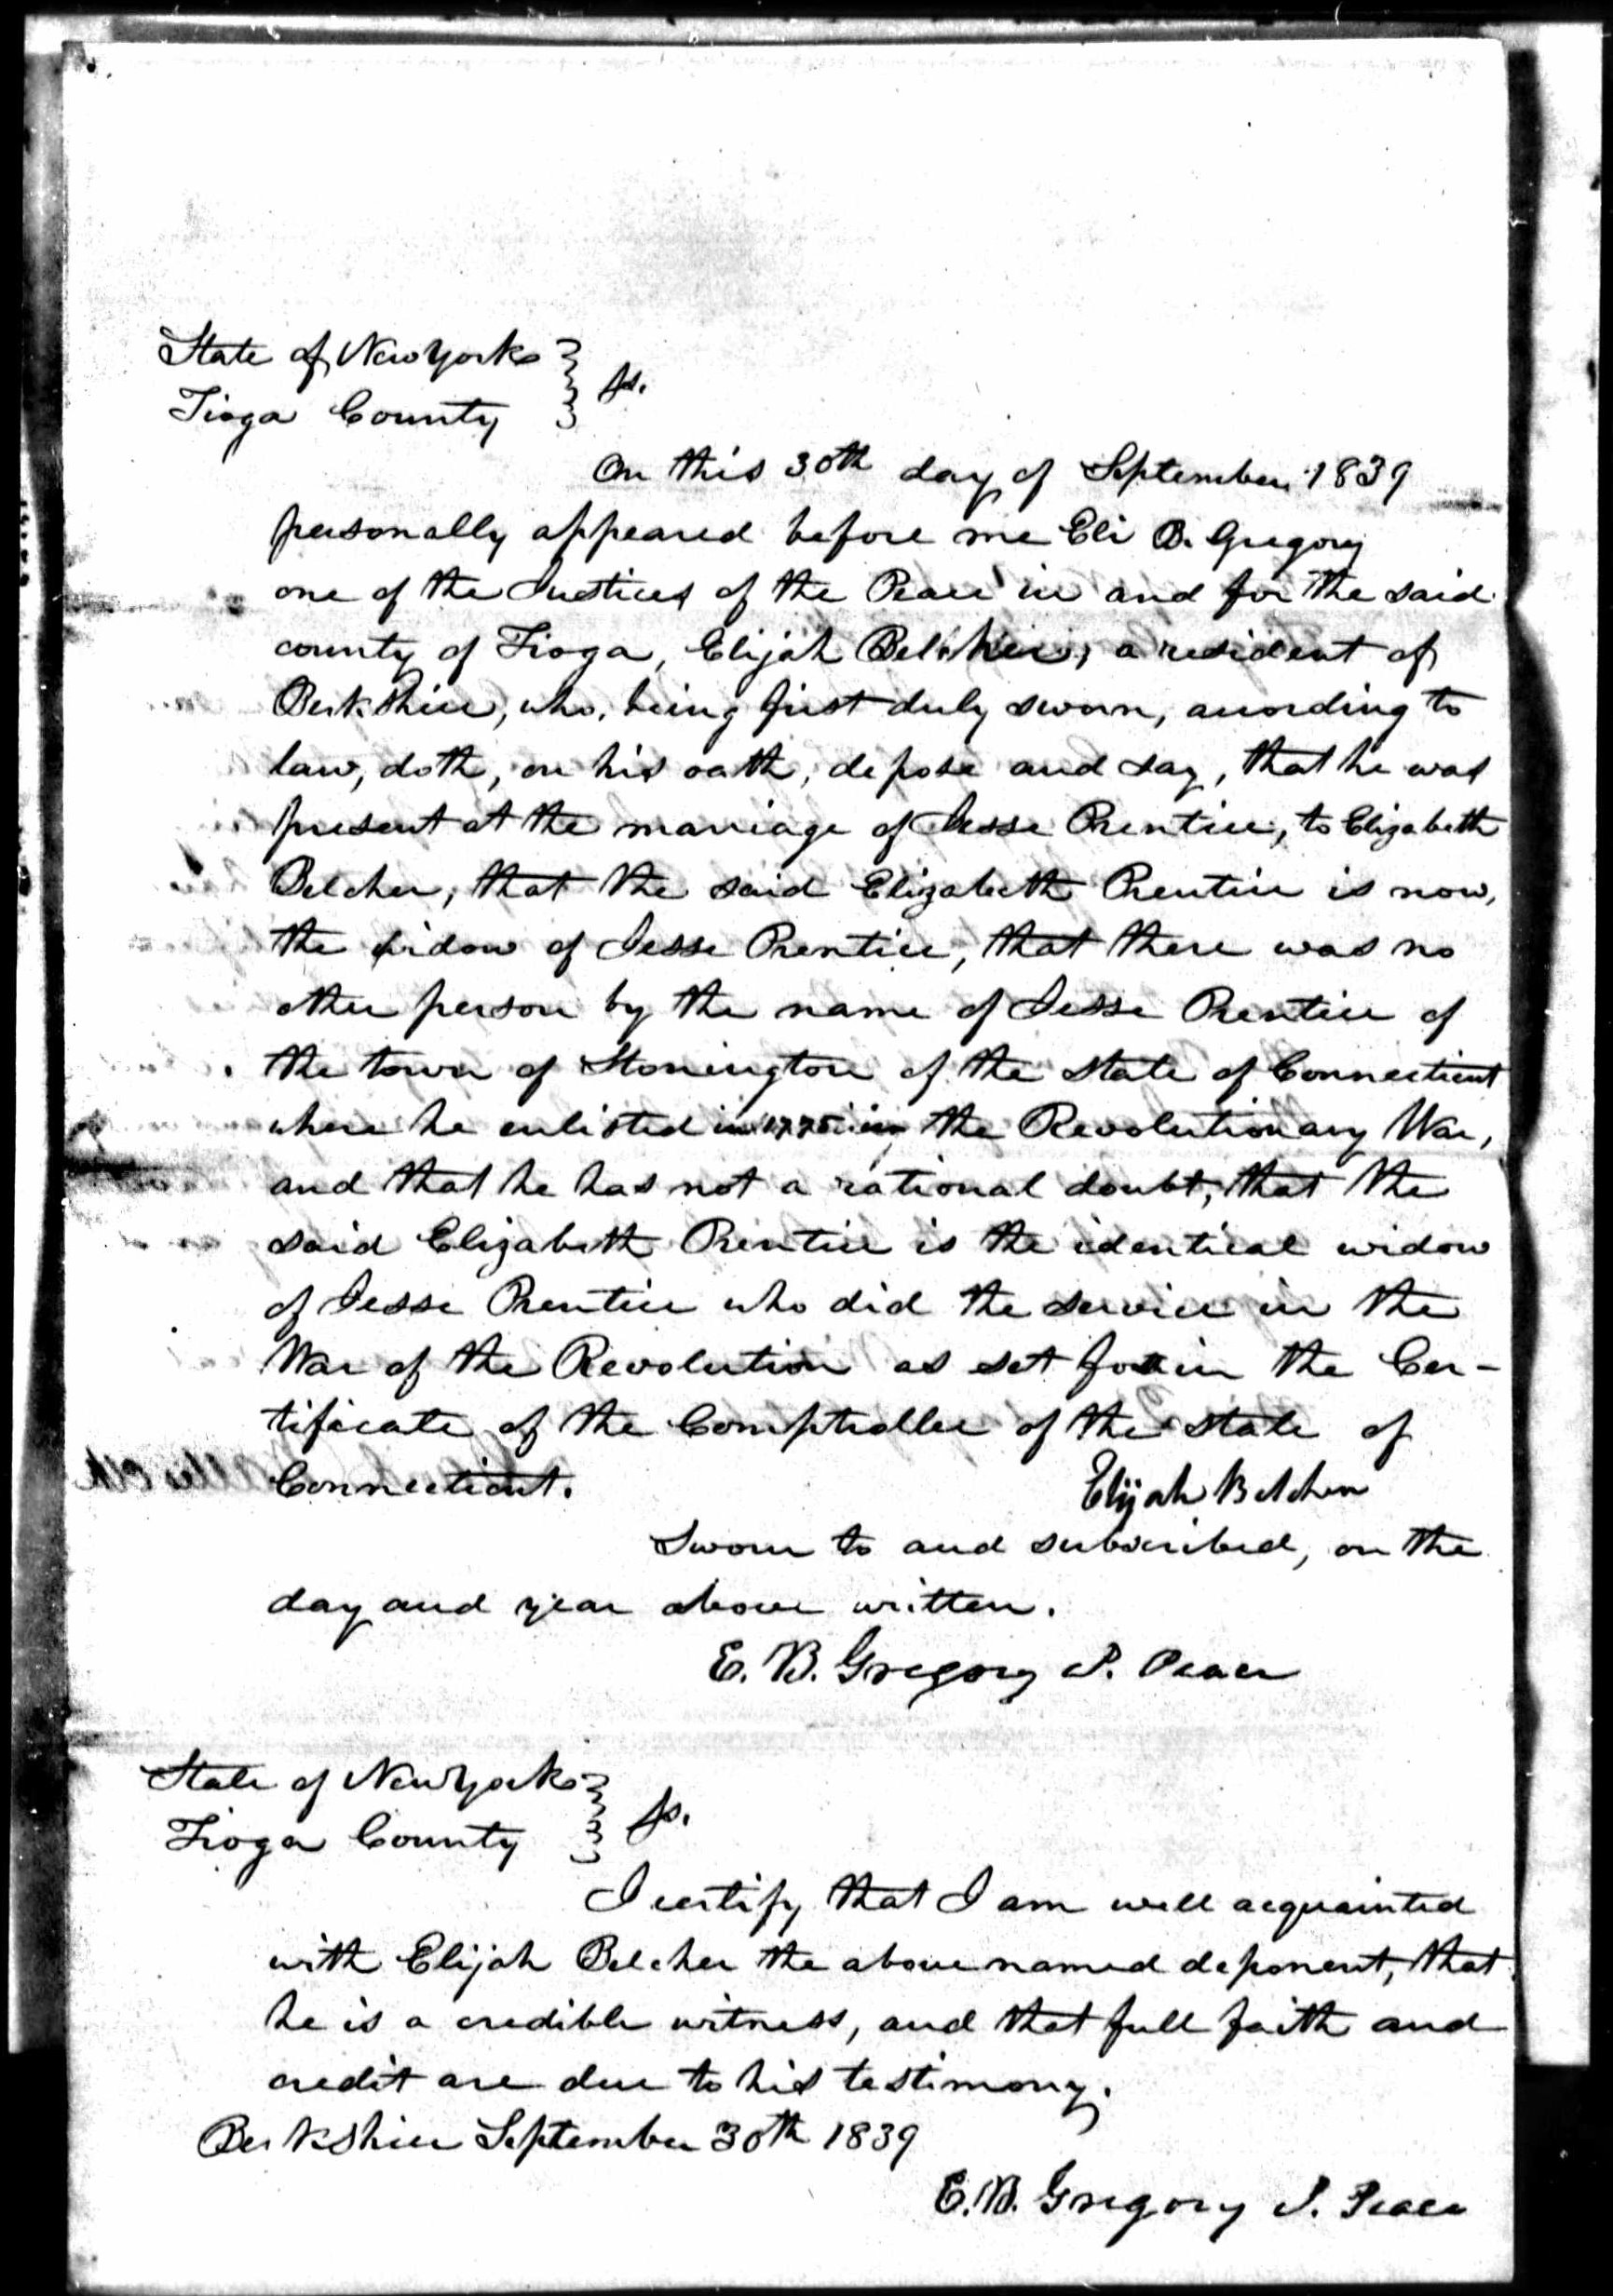 State of New York }
Tioga County } ss.
On this 30th day of September 1839
personally appeared before me Eli B. Gregory
one of the Justices of the Peace in and for the said
county of Tioga, Elijah Belcher, a resident of
Berkshire, who, being first duly sworn, acording to
law, doth, on his oath, depose and say, that he was
present at the marriage of Jesse Prentice, to Elizabeth
Belcher, that the said Elizabeth Prentice is now,
the widow of Jesse Prentice, that there was no
other person by the name of Jesse Prentice of
the town of Stonington of the State of Connecticut
where he enlisted in 1775 in the Revolutionary War,
and that he has not a rational doubt, that the
said Elizabeth Prentice is the identical widow
of Jesse Prentice who did the service in the
War of the Revolution as set in the Cer-
tificate of the Comptroller of the State of
Connecticut. Elijah Belcher
Sworn to and subscribed, on the
day and year above written.
E. B. Gregory J. Peace
State of New York }
Tioga County } ss.
I certify that I am well acquainted
with Elijah Belcher the above named deponent, that
he is a credible witness, and that full faith and
credit are due to his testimony.
Berkshire September 30th 1839
E. B. Gregory J. Peace